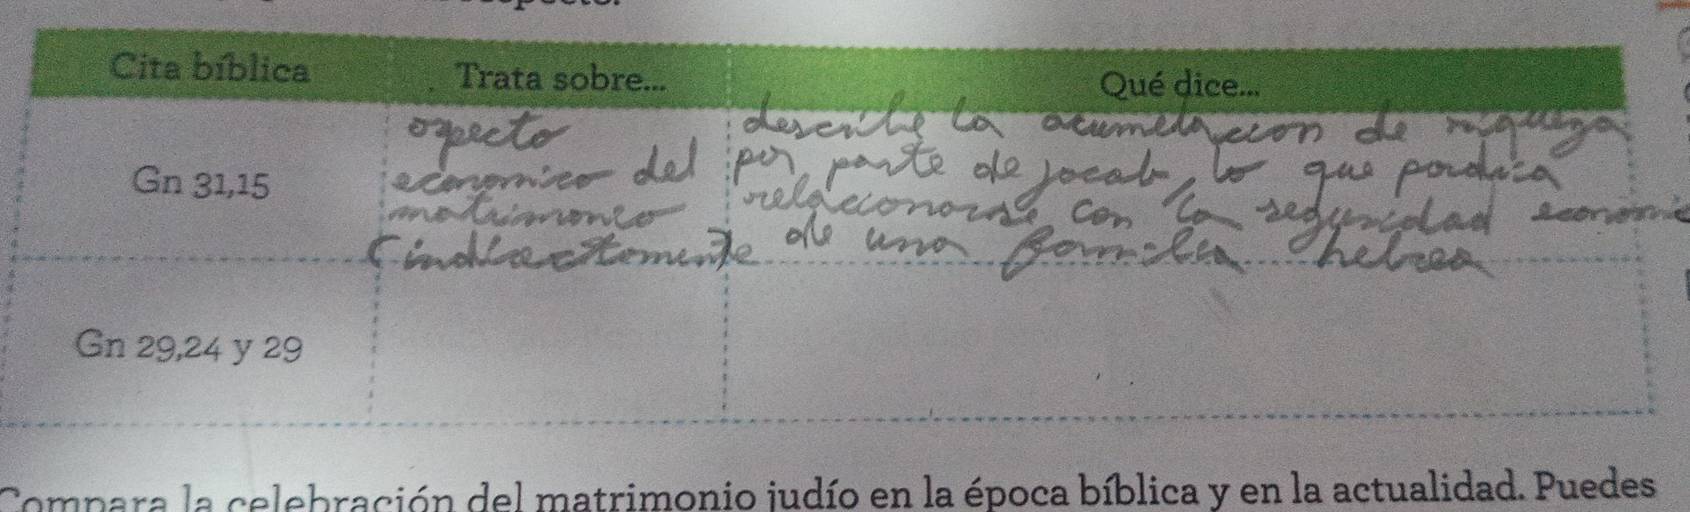 Cita bíblica Trata sobre... Qué dice...
Gn 31,15
aspecto
economico del
matrimonio
(indirectamente
describe la acumulacion de riqueza
por parte de jocab, lo que podria
relacionarse con la seguridad economic
de una familia hebrea
Gn 29,24 y 29
Compara la celebración del matrimonio judío en la época bíblica y en la actualidad. Puedes